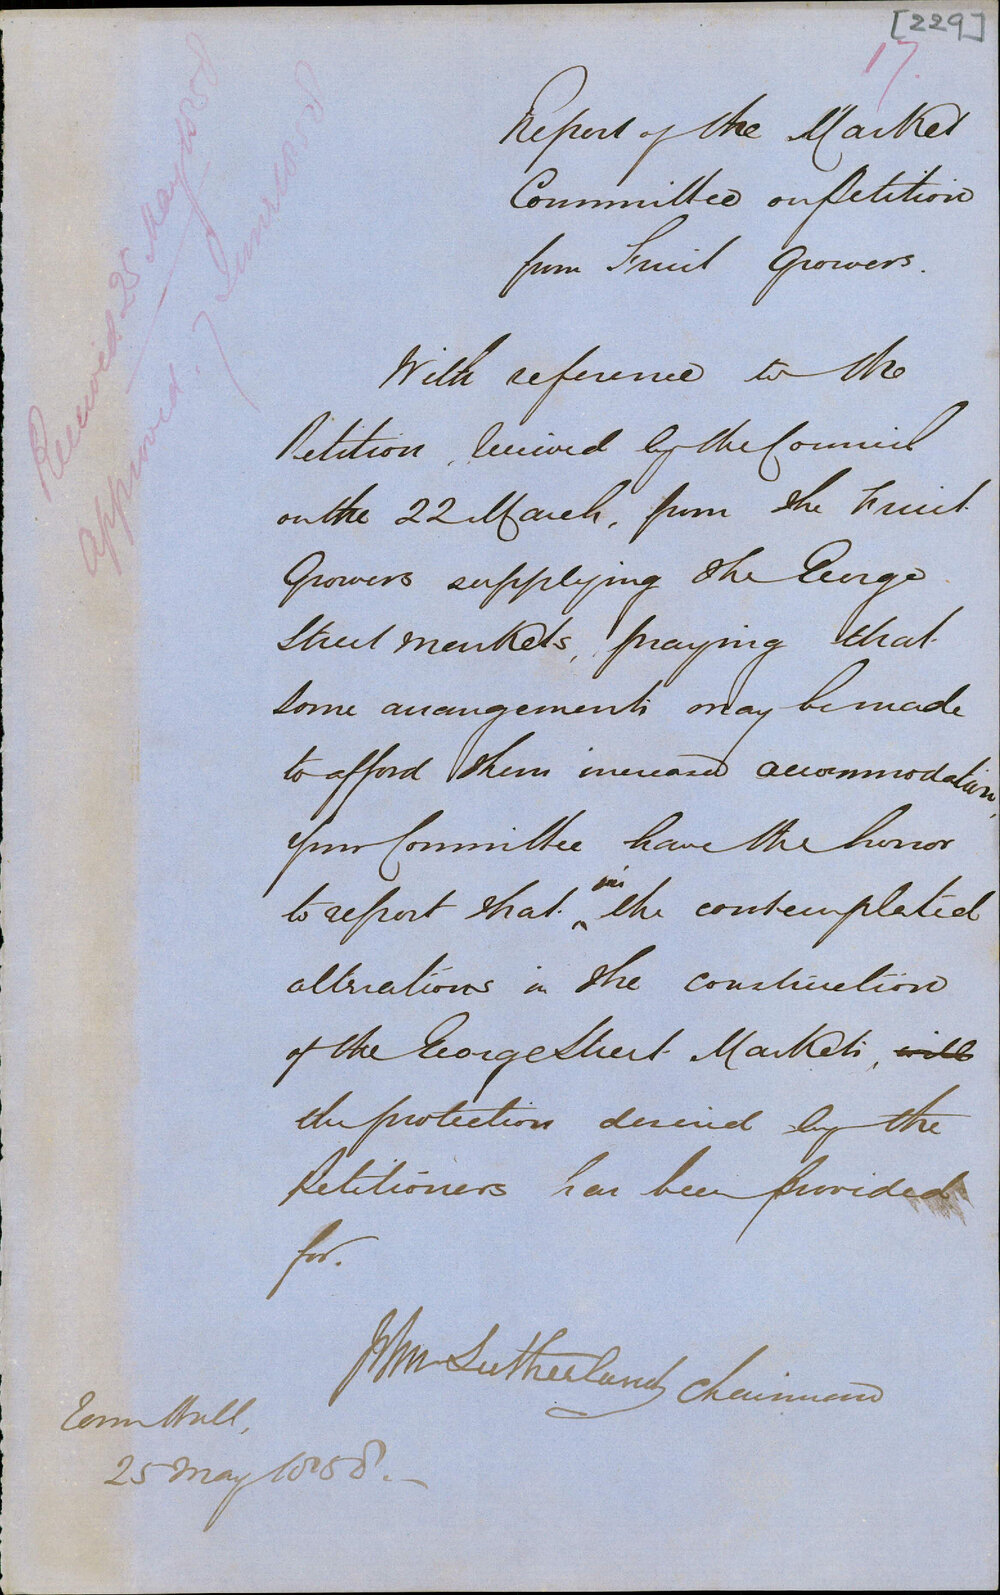 [229]
17.
Received 25 May 1858
Approved. 7 June 1858
Report of the Market
Committee on Petition
from Fruit Growers.
With reference to the
Petition, received by the Council
on the 22 March, from the Fruit
Growers supplying the George
Street Markets, praying that
some arrangements may be made
to afford them increased accommodation,
Your Committee have the honor
to report that ^in the contemplated
alterations in the construction
of the George Street Markets, ~~will~~
the protection desired by the
Petitioners has been provided
for.
John Sutherland Chairman
Town Hall,
25 May 1858.